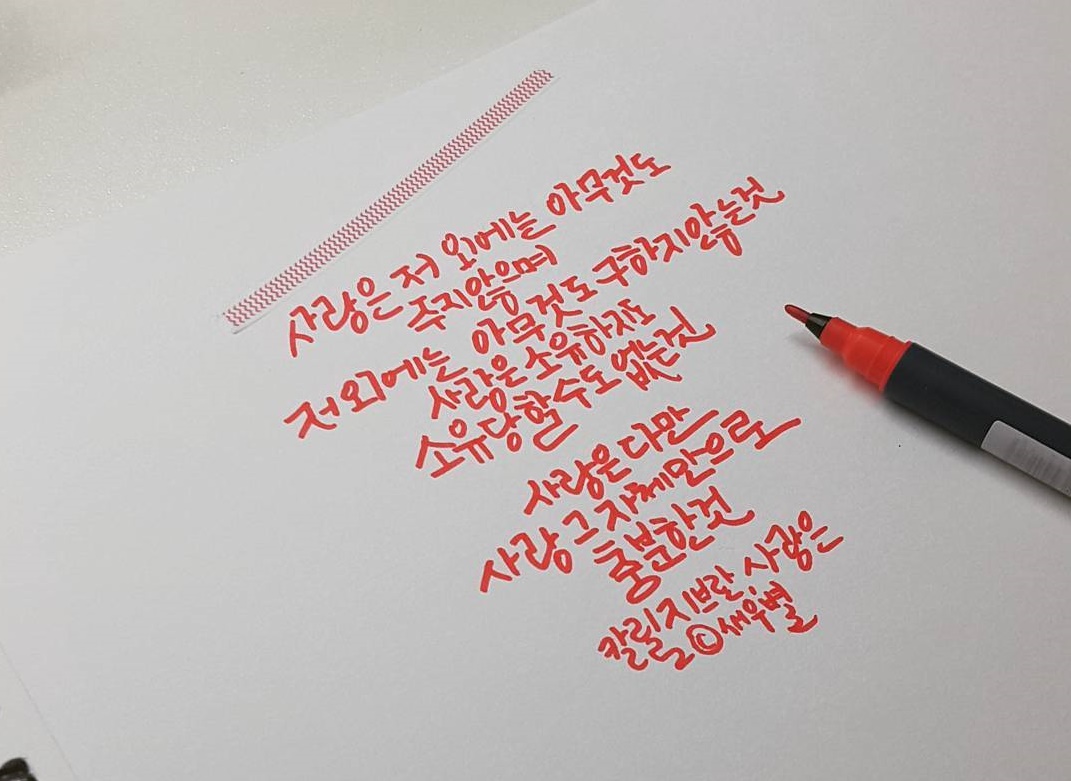 사랑은 저 외에는 아무것도
주지않으며
저 외에는 아무것도 구하지않는것
사랑은 소유하지도
소유당할 수도 없는것
사랑은 다만
사랑 그 자체만으로
충분한것
칼릴지브란, 사랑은
©새우별